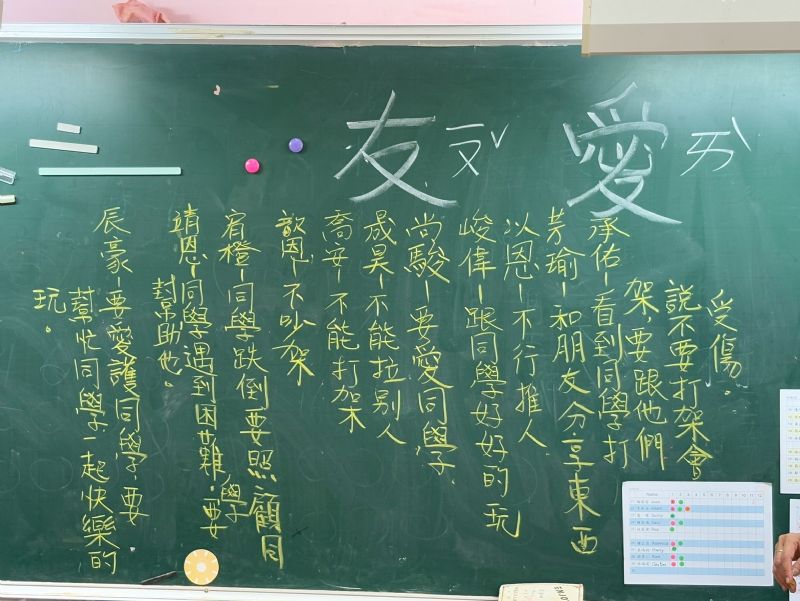 友 ㄧㄡˇ 愛 ㄞˋ
承佑-看到同學打
架,要跟他們
說不要打架會
受傷。
芳瑜-和朋友分享東西
以恩-不行推人
峻偉-跟同學好好的玩
尚駿-要愛同學
晟昊-不能拉別人
喬安-不能打架
歆恩-不吵架
宥橙-同學跌倒要照顧同學
靖恩-同學遇到困難,要
幫助他。
辰豪-要愛護同學,要
幫忙同學一起快樂的
玩。
Name 1 2 3 4 5 6 7 8 9 10 11 12